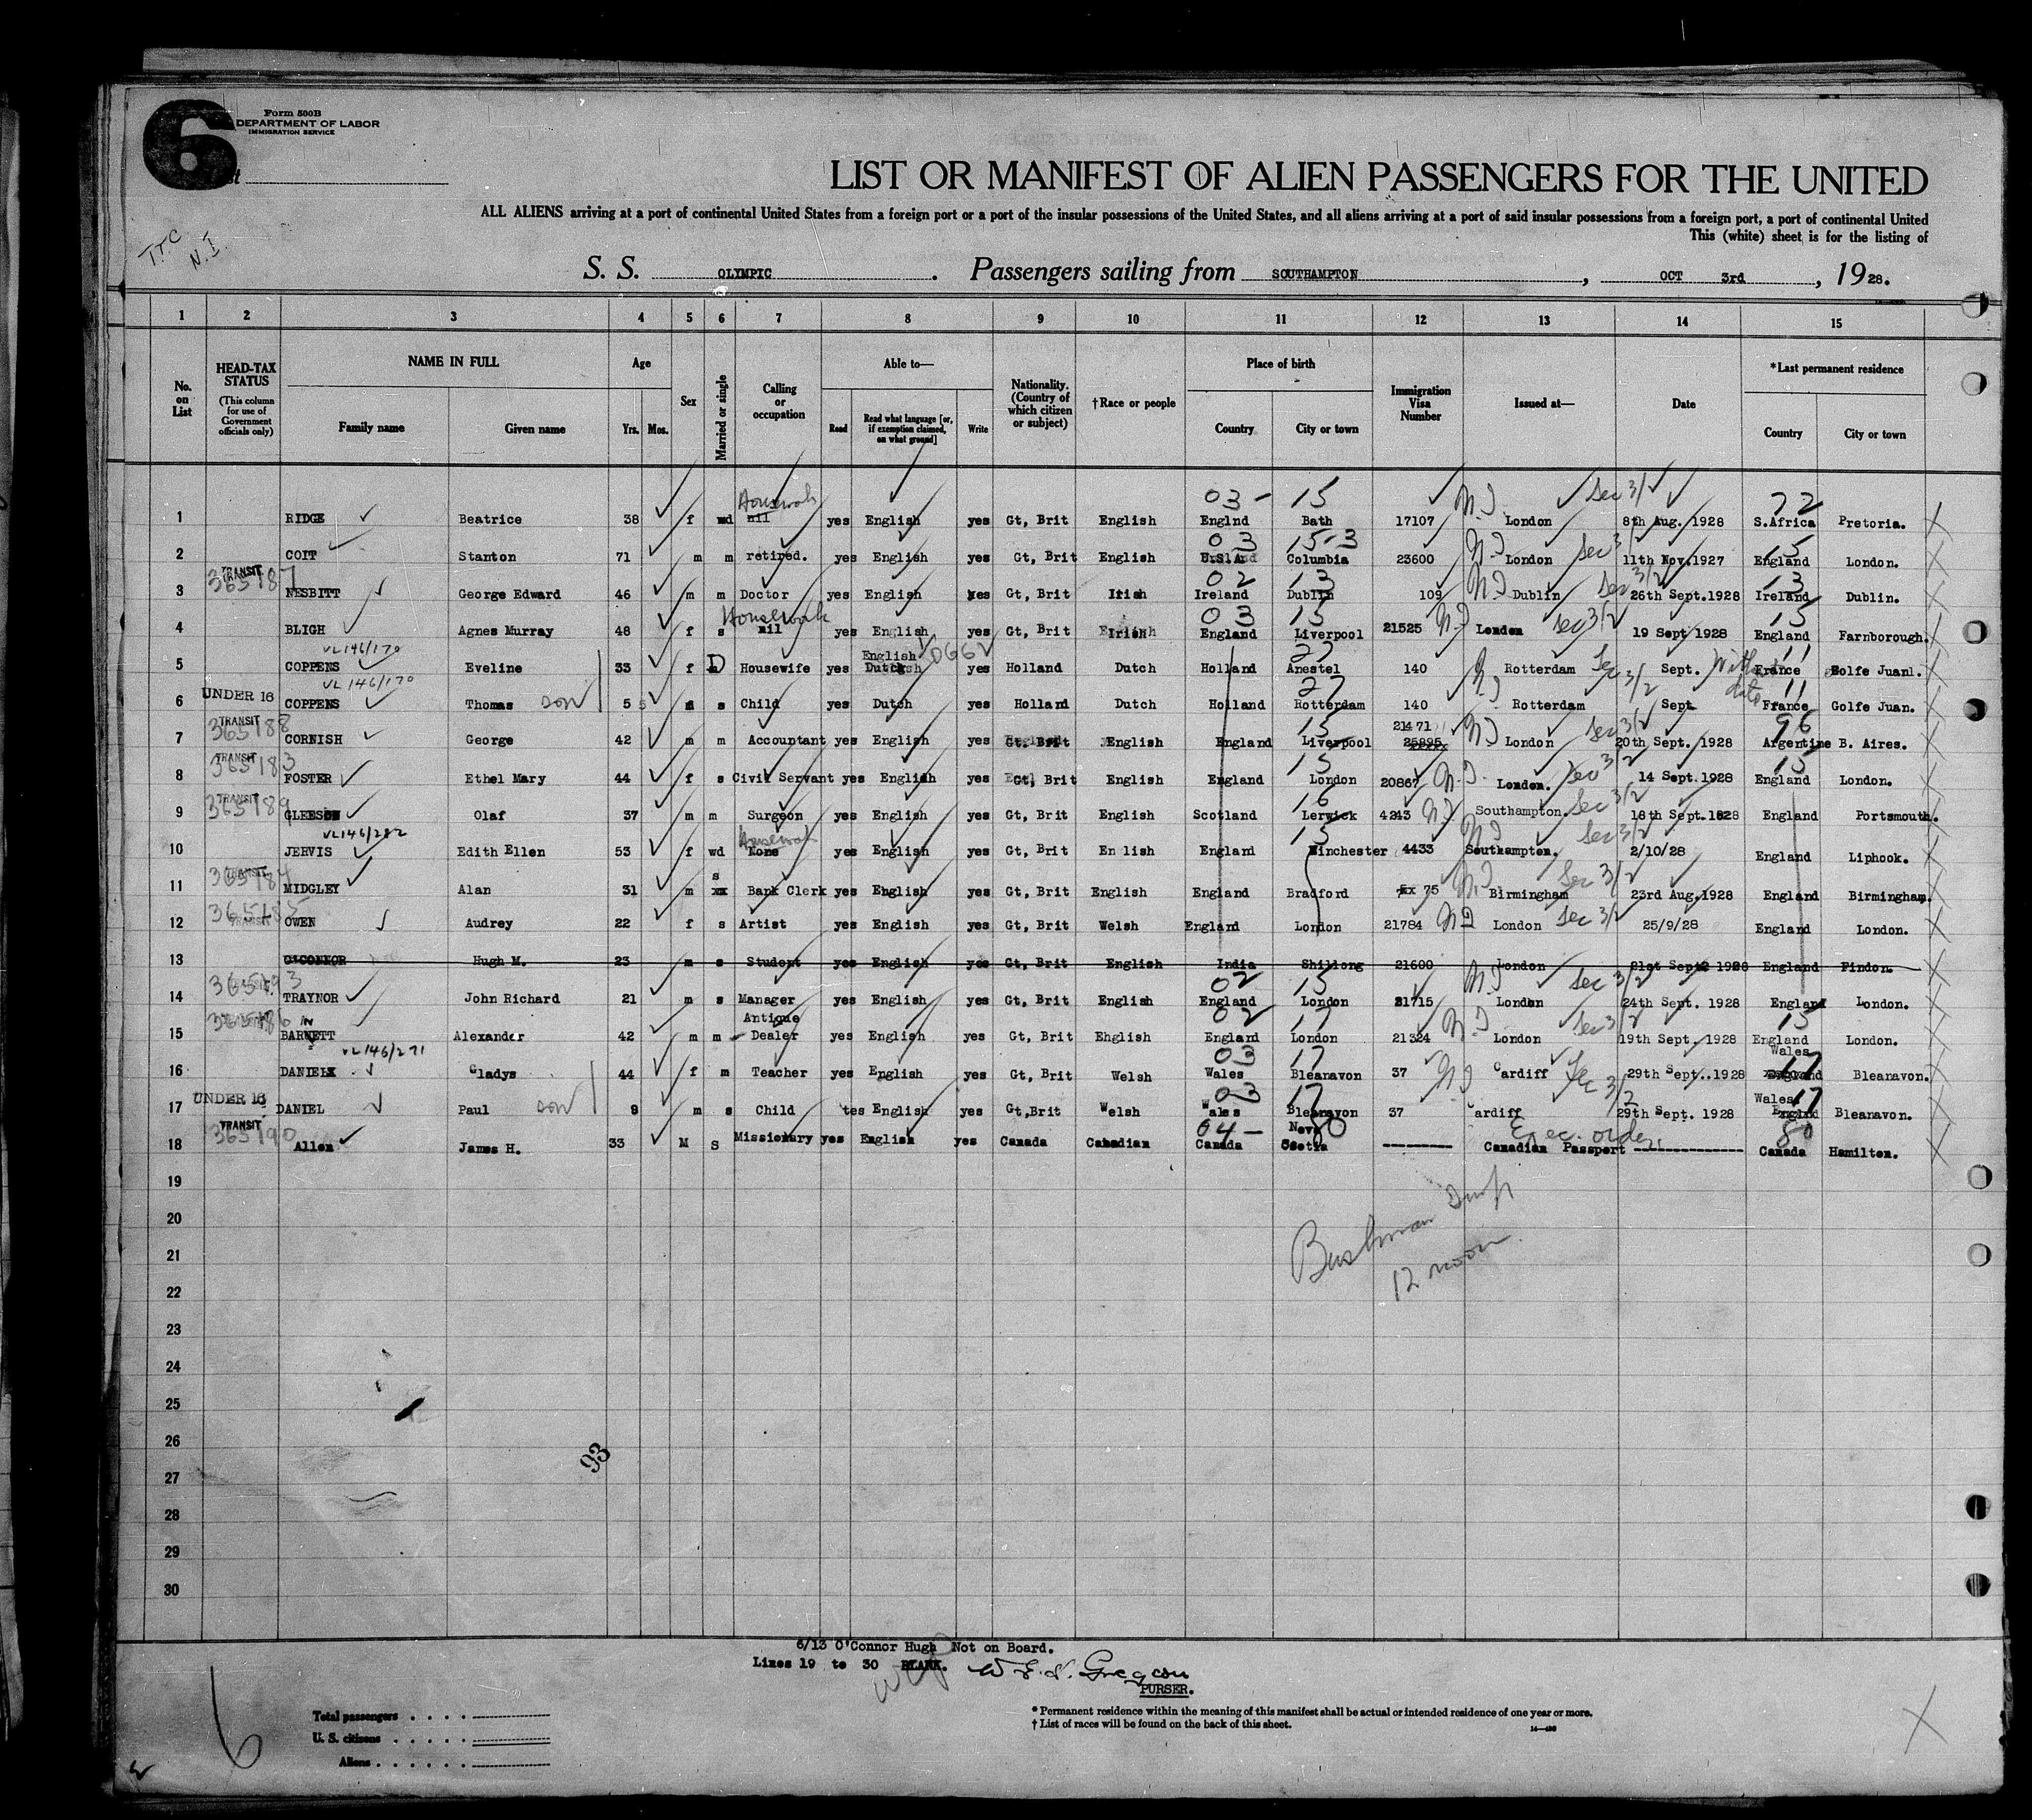 6
Form 500B
DEPARTMENT OF LABOR
IMMIGRATION SERVICE
T.T.C
N.I.
LIST OR MANIFEST OF ALIEN PASSENGERS FOR THE UNITED
ALL ALIENS arriving at a port of continental United States from a foreign port or a port of the insular possessions of the United States, and all aliens arriving at a port of said insular possessions from a foreign port, a port of continental United
This (white) sheet is for the listing of
S. S. OLYMPIC. Passengers sailing from SOUTHAMPTON, OCT 3rd, 1928.
1 2 3 4 5 6 7 8 9 10 11 12 13 14 15
No. on List
HEAD-TAX STATUS (This column for use of Government officials only)
NAME IN FULL
Family name Given name
Age
Yrs. Mos.
Sex
Married or single
Calling or occupation
Able to—
Read Read what language [or, if exemption claimed, on what ground] Write
Nationality. (Country of which citizen or subject)
†Race or people
Place of birth
Country City or town
Immigration Visa Number
Issued at—
Date
*Last permanent residence
Country City or town
Housework 03 - 15 N.I. Sec 3/2 72
1 RIDGE Beatrice 38 f wd nil yes English yes Gt, Brit English Englnd Bath 17107 London 8th Aug. 1928 S.Africa Pretoria.
03 15-3 N.I Sec 3/2 15
2 COIT Stanton 71 m m retired. yes English yes Gt, Brit English U.S.A Columbia 23600 London 11th Nov.1927 England London.
TRANSIT 365187 02 13 N.I Sec 3/2 13
3 NESBITT George Edward 46 m m Doctor yes English yes Gt, Brit Irish Ireland Dublin 109 Dublin 26th Sept.1928 Ireland Dublin.
Housework 03 15 N.I Sec 3/2 15
4 BLIGH Agnes Murray 48 f s nil yes English yes Gt, Brit Irish England Liverpool 21525 London 19 Sept 1928 England Farnborough.
VL146/170 English 27 Sec 3/2 11
5 COPPENS Eveline 33 f D Housewife yes Dutch yes Holland Dutch Holland Anestel 140 Rotterdam Sept. France Golfe Juanl.
VL 146/170 27 Sec 3/2 11
6 UNDER 16 COPPENS Thomas son 5 s Child yes Dutch yes Holland Dutch Holland Rotterdam 140 Rotterdam Sept France Golfe Juan.
TRANSIT 365188 15 21471 N.I Sec 3/2 96
7 CORNISH George 42 m m Accountant yes English yes Gt. Brit English England Liverpool London 20th Sept. 1928 Argentine B. Aires.
TRANSIT 365183 15 N.I. Sec 3/2 15
8 FOSTER Ethel Mary 44 f s Civil Servant yes English yes Gt, Brit English England London 20867 London. 14 Sept.1928 England London.
TRANSIT 365189 16 N.I Sec 3/2
9 GLEESON Olaf 37 m m Surgeon yes English yes Gt, Brit English Scotland Lerwick 4243 Southampton. 18th Sept.1928 England Portsmouth.
VL146/282 Housework 15 N.I Sec 3/2
10 JERVIS Edith Ellen 53 f wd None yes English yes Gt, Brit En lish England Winchester 4433 Southampton. 2/10/28 England Liphook.
TRANSIT 365184 s N.I Sec 3/2
11 MIDGLEY Alan 31 m xx Bank Clerk yes English yes Gt, Brit English England Bradford Ex 75 Birmingham 23rd Aug.1928 England Birmingham.
365185 TRANSIT
12 OWEN Audrey 22 f s Artist yes English yes Gt, Brit Welsh England London 21784 N.I London Sec 3/2 25/9/28 England London.
13 O'CONNOR Hugh M. 23 m s Student yes English yes Gt, Brit English India Shillong 21600 London 21st Sept 1928 England Findon.
02 15 N.I Sec 3/2
14 TRAYNOR John Richard 21 m s Manager yes English yes Gt, Brit English England London 21715 London 24th Sept. 1928 England London.
365186 Antique 02 17 N.I Sec 3/2 15
15 BARNETT Alexander 42 m m Dealer yes English yes Gt, Brit Ehglish England London 21324 London 19th Sept. 1928 England London.
VL146/271 03 17 Wales 17
16 DANIEL Gladys 44 f m Teacher yes English yes Gt, Brit Welsh Wales Bleanavon 37 N.I Cardiff Sec 3/2 29th Sept..1928 Bleanavon.
UNDER 16 03 17 Wales 17
17 DANIEL Paul son 8 m s Child tes English yes Gt,Brit Welsh Wales Bleanavon 37 ardiff 29th Sept. 1928 Bleanavon.
TRANSIT 365190 04 - Nova 80 Exec. order. 80
18 Allen James H. 33 M S Missionary yes English yes Canada Canadian Canada Scotia -------- Canadian Passport ------------- Canada Hamilton.
19
20
21
22
23
24
25
26
27
28
29
30
Bushman
12 noon.
93
6/13 O'Connor Hugh Not on Board.
Lines 19 to 30 BLANK.
PURSER.
Total passengers . . . .
U. S. citizens . . . . .
Aliens . . . . . .
* Permanent residence within the meaning of this manifest shall be actual or intended residence of one year or more.
† List of races will be found on the back of this sheet.
6
X